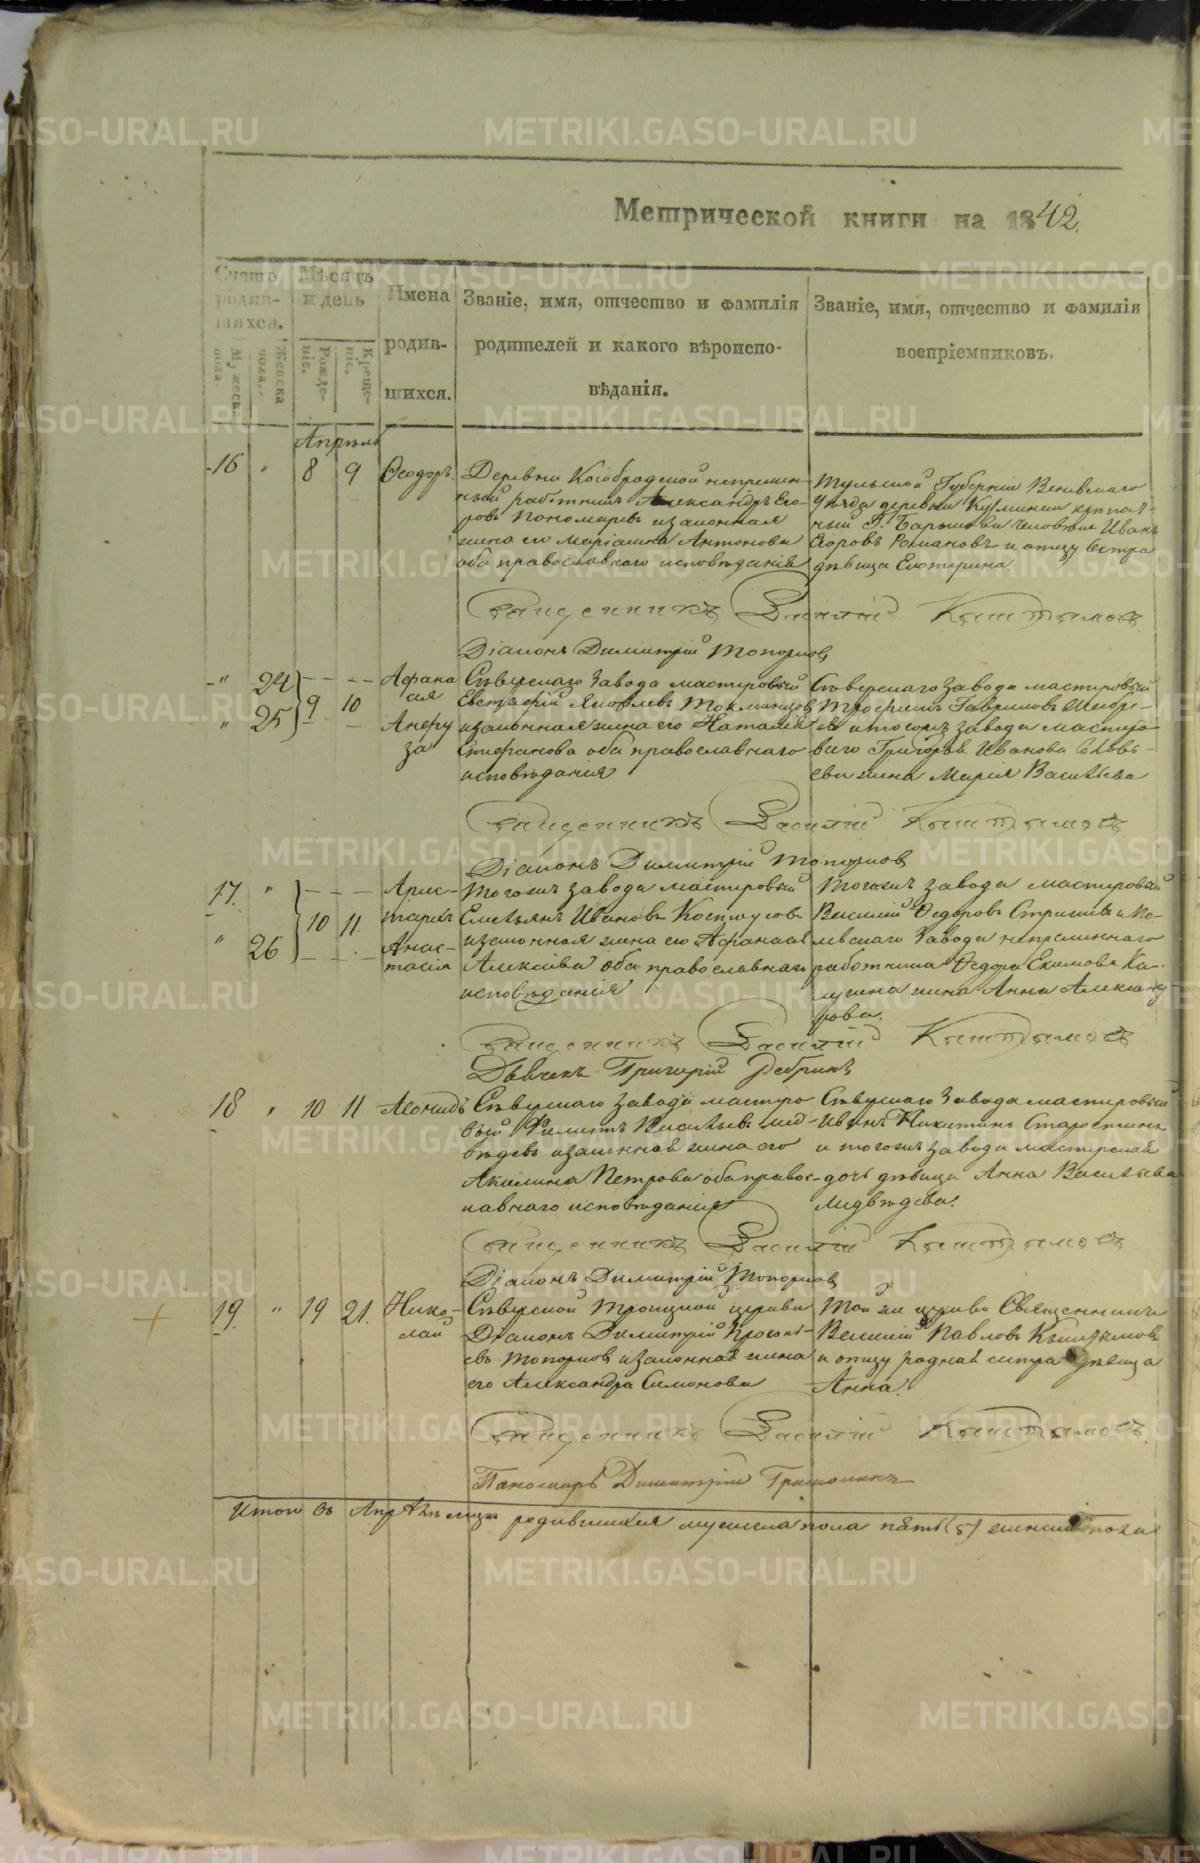 Метрической книги на 1842.
Счетъ родив-шихся.
Мужеск. пола.
Женска пола.
Мѣсяцъ и день
Рожде-нiе.
Креще-нiе.
Имена
родив-
шихся.
Званіе, имя, отчество и фамилія
родителей и какого вѣроиспо-
вѣданія.
Званіе, имя, отчество и фамилія
воспріемниковъ.
Апрѣль
16 " 8 9 Ѳеодоръ
Деревни Кособродской непремен-
ный работникъ Александръ Его-
ровъ Пономаревъ и законная
жена ея Маріанна Антонова
оба православнаго исповѣданія
Тульской Губерніи Веневскаго
уѣзда деревни
человѣкъ Иванъ
Егоровъ Романовъ и отцу сестра
дѣвица Екатерина
Священникъ Василій Кыштымовъ
Діаконъ Димитрій Топорковъ
" 24 9 10 Афана
сія
" 25 Анфу
за
Сѣверскаго завода мастеровый
Евстафій Яковлевъ
и законная жена его Наталія
Стефанова оба православнаго
исповѣданія
Сѣверскаго завода мастеровый
Трофимъ Гавриловъ
и тогожъ завода мастеро
ваго Григорья Иванова
жена Марія Васильева
Священникъ Василій Кыштымовъ
Діаконъ Димитрій Топорковъ
17 " 10 11 Арис-
тархъ
" 26 Анас-
тасія
Тогожъ завода мастеровый
Емельянъ Ивановъ Костоусовъ
и законная жена его Афанасія
Алексѣева оба православнаго
исповѣданія
Тогожъ завода мастеровый
Василій Ѳедоровъ и По-
левскаго завода непременнаго
работника Ѳедора Екимова Ка-
жена Анна Александ
рова.
Священникъ Василій Кыштымовъ
Дьячекъ Григорій
18 " 10 11 Леонидъ
Сѣверскаго завода мастеро
вый Филиппъ Васильевъ Мед-
вѣдевъ и законная жена его
Акилина Петрова оба правос-
лавнаго исповѣданія
Сѣверскаго завода мастеровый
Иванъ Никитинъ Старостинъ
и тогожъ завода мастерская
дочь дѣвица Анна Васильева
Медвѣдева.
Священникъ Василій Кыштымовъ
Діаконъ Димитрій Топорковъ
19 " 19 21. Нико-
лай
Сѣверской Троицкой церкви
Діаконъ Димитрій
Топорковъ и законная жена
его Александра Симонова
Той же церкви Священникъ
Василій Павловъ Кыштымовъ
и отцу родная сестра дѣвица
Анна.
Священникъ Василій Кыштымовъ
Пономарь Димитрій
Итого въ Апрѣлѣ мцѣ родившихся мужеска пола пять (5) женска пола
METRIKI.GASO-URAL.RU